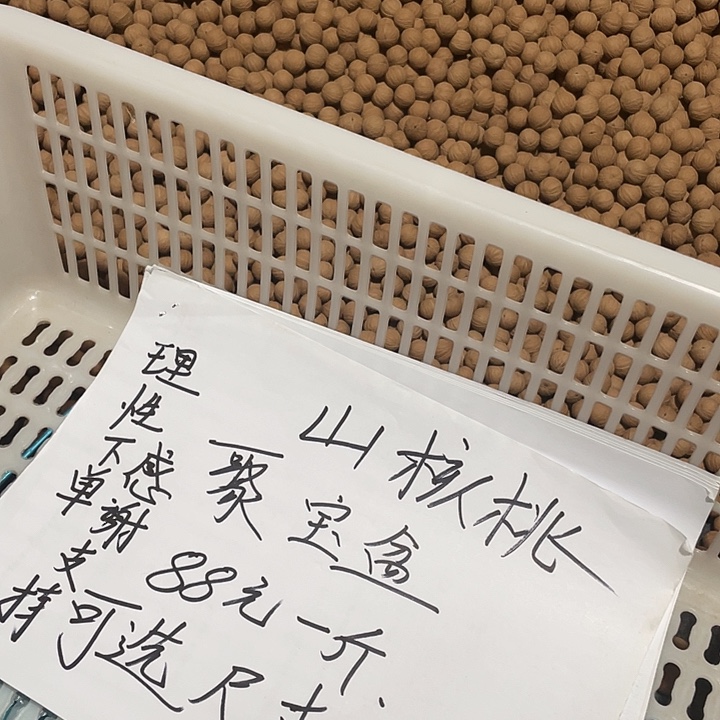 山核桃
聚宝盆
88元一斤、
可选尺寸
理性下单
感謝支持